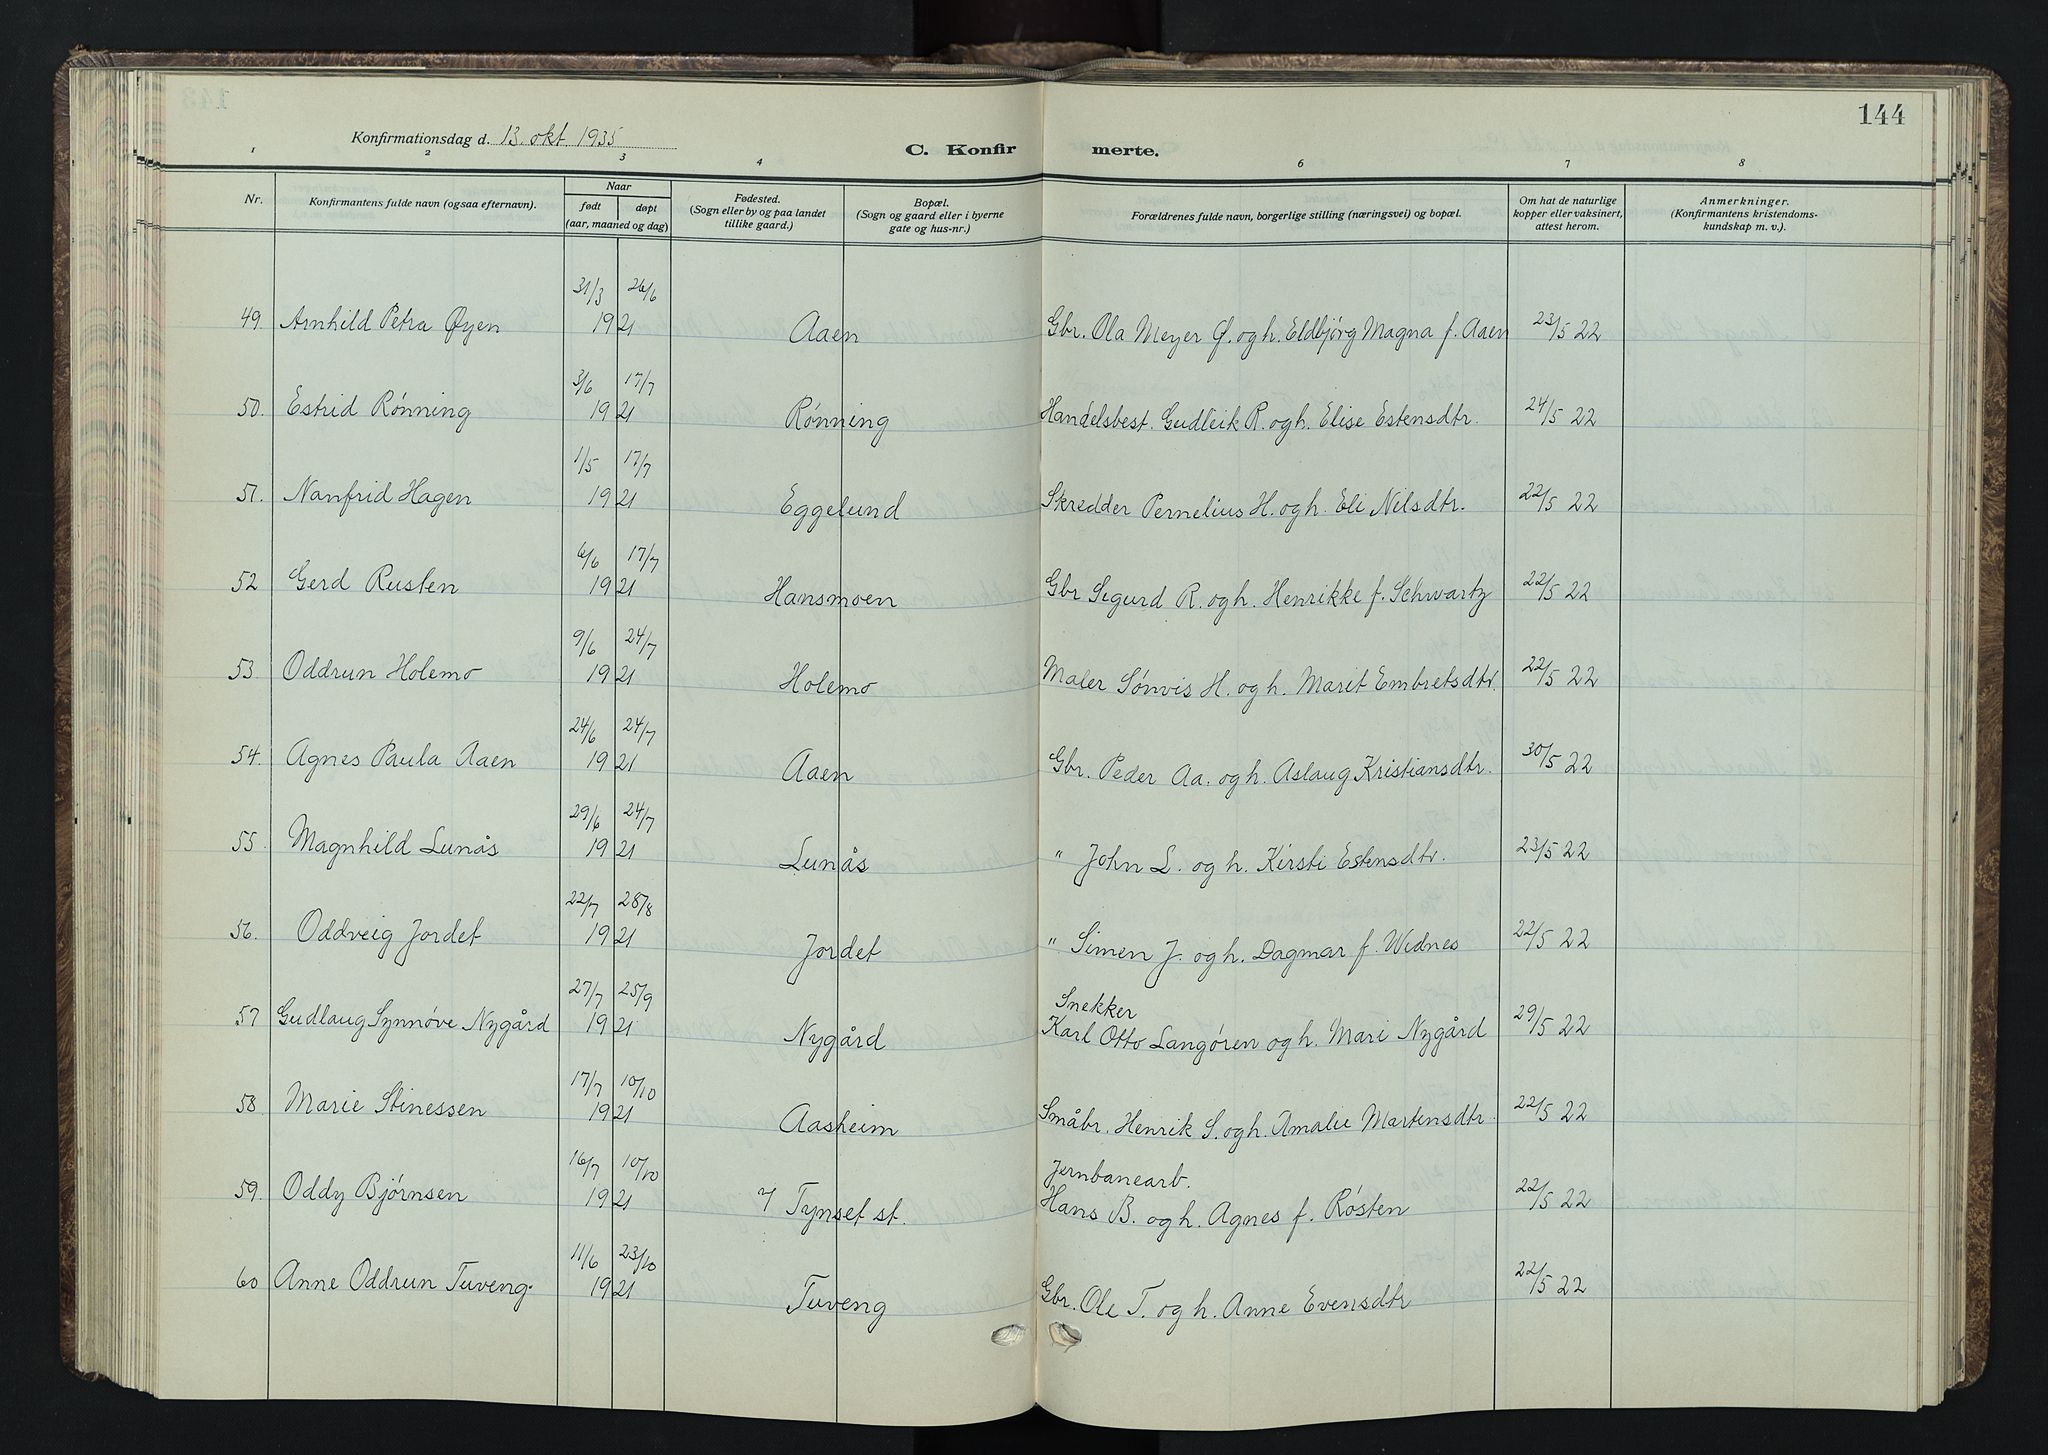 144
Konfirmationsdag d. 13. okt 1935
C. Konfirmerte.
1 2 3 4 6 7 8
Nr. Konfirmantens fulde navn (ogsaa efternavn). Naar født døpt (aar, maaned og dag) Fødested. (Sogn eller by og paa landet tillike gaard.) Bopæl. (Sogn og gaard eller i byerne gate og hus-nr.) Forældrenes fulde navn, borgerlige stilling (næringsvei) og bopæl. Om hat de naturlige kopper eller vaksinert, attest herom. Anmerkninger. (Konfirmantens kristendomskundskap m. v.).
31/3 26/6
49. Arnhild Petra Øyen 1921 Aaen Gbr. Ola Meyer Ø. og h. Eldbjørg Magna f. Aaen 23/5 22
3/6 17/7
50. Estrid Rønning 1921 Rønning Handelsbest. Gudleik R. og h. Elise Estensdtr. 24/5 22
1/5 17/7
51. Nanfrid Hagen 1921 Eggelund Skredder Pernelius H. og h. Eli Nilsdtr. 22/5 22
6/6 17/7
52 Gerd Rusten 1921 Hansmoen Gbr Sigurd R. og h. Henrikke f. Schwartz 22/5 22
9/6 24/7
53. Oddrun Holemo 1921 Holemo Maler Sønvis H. og h. Marit Embretsdtr. 22/5 22
24/6 24/7
54. Agnes Paula Aaen 1921 Aaen Gbr. Peder Aa. og h. Aslaug Kristiansdtr. 30/5 22
29/6 24/7
55. Magnhild Lunås 1921 Lunås " John L. og h. Kirsti Estensdtr. 23/5 22
22/7 28/8
56. Oddveig Jordet 1921 Jordet " Simen J. og h. Dagmar f. Widnes 22/5 22
27/7 25/9 Snekker
57 Gudlaug Synnøve Nygård 1921 Nygård Karl Otto Langøren og h. Mari Nygård 29/5 22
17/7 10/10
58. Marie Stinessen 1921 Aasheim Småbr. Henrik S. og h. Amalie Martensdtr. 22/5 22
16/7 10/10 Jernbanearb.
59. Oddy Bjørnsen 1921 Tynset st. Hans B. og h. Agnes f. Røsten 22/5 22
11/6 23/10
60 Anne Oddrun Tuveng. 1921 Tuveng Gbr. Ole T. og h. Anne Evensdtr 22/5 22